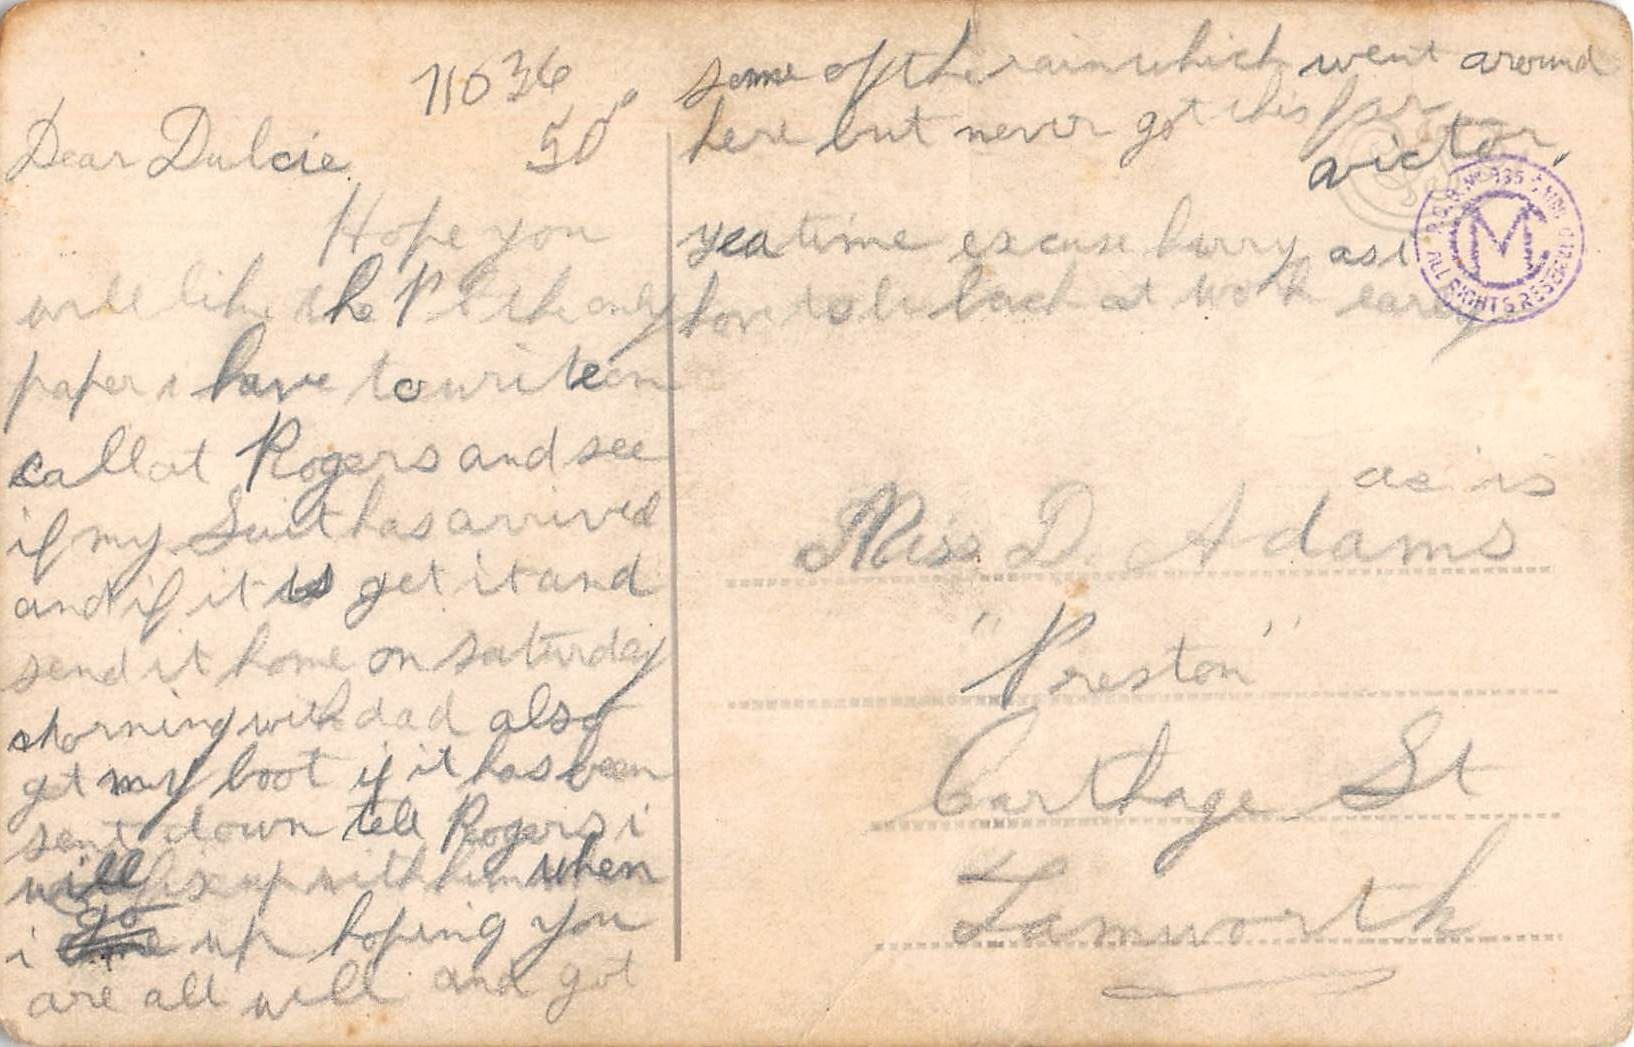 11036
50
Dear Dulcie
Hope you
will like the P C the only
paper i have to write on
call at Rogers and see
if my Suit has arrived
and if it is get it and
send it home on Saturday
morning with dad also
get my boot if it has been
sent down tell Rogers i
will fix up with him when
i go up hoping you
are all well and got
some of the rain which went around
here but never got this far
victor,
yea time excuse hurry as i
have to be back at work early
ALL RIGHTS RESERVED
MC
as is
Miss D. Adams
"Preston"
Carthage St
Tamworth